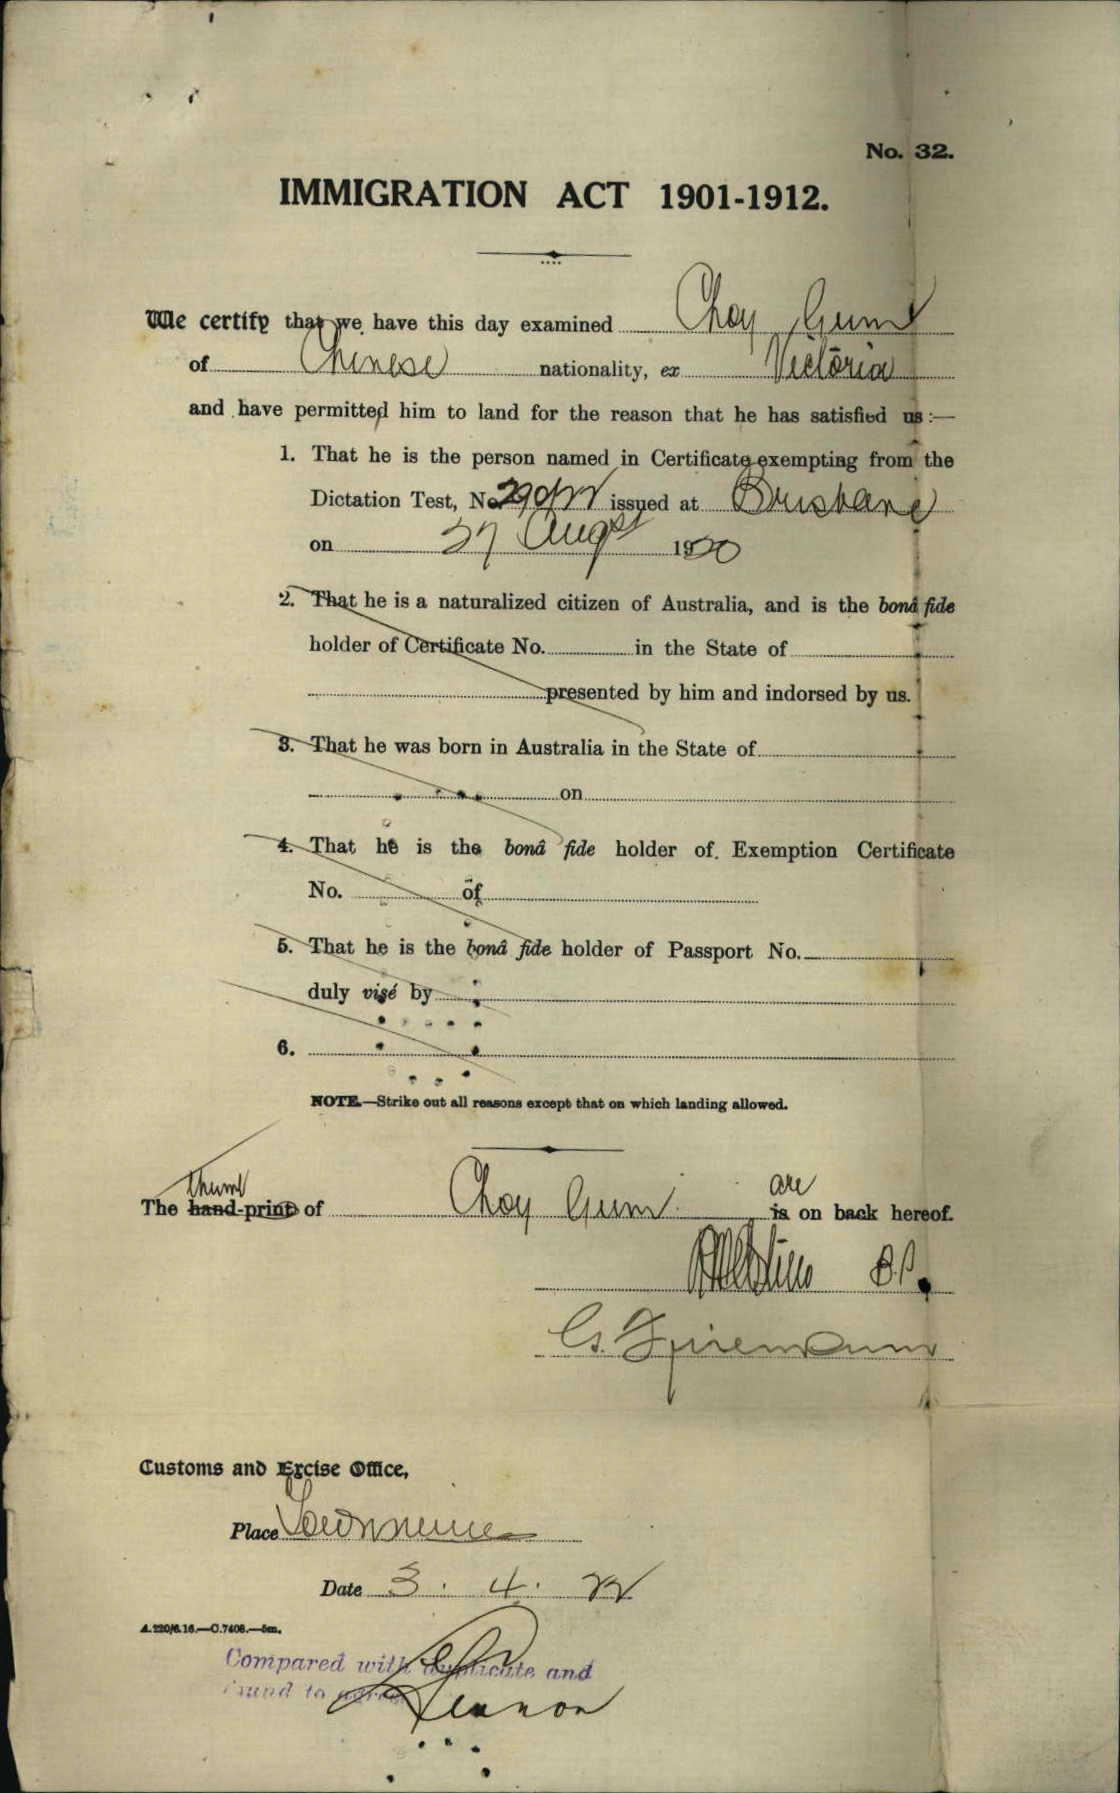 No. 32.
IMMIGRATION ACT 1901-1912.
We certify that we have this day examined Choy Gum
of Chinese nationality, ex Victoria
and have permitted him to land for the reason that he has satisfied us:—
1. That he is the person named in Certificate exempting from the
Dictation Test, No. issued at Brisbane
on 27 Augst 1920
2. That he is a naturalized citizen of Australia, and is the bonâ fide
holder of Certificate No. in the State of
presented by him and indorsed by us.
3. That he was born in Australia in the State of
on
4. That he is the bonâ fide holder of Exemption Certificate
No. of
5. That he is the bonâ fide holder of Passport No.
duly visé by
6.
NOTE.—Strike out all reasons except that on which landing allowed.
thumb are
The hand-print of Choy Gum is on back hereof.
Customs and Excise Office,
Place Townsville
Date 3. 4. 22
A.220/6.16.—C.7408.—5m.
Compared with duplicate and
found to agree
Lennon